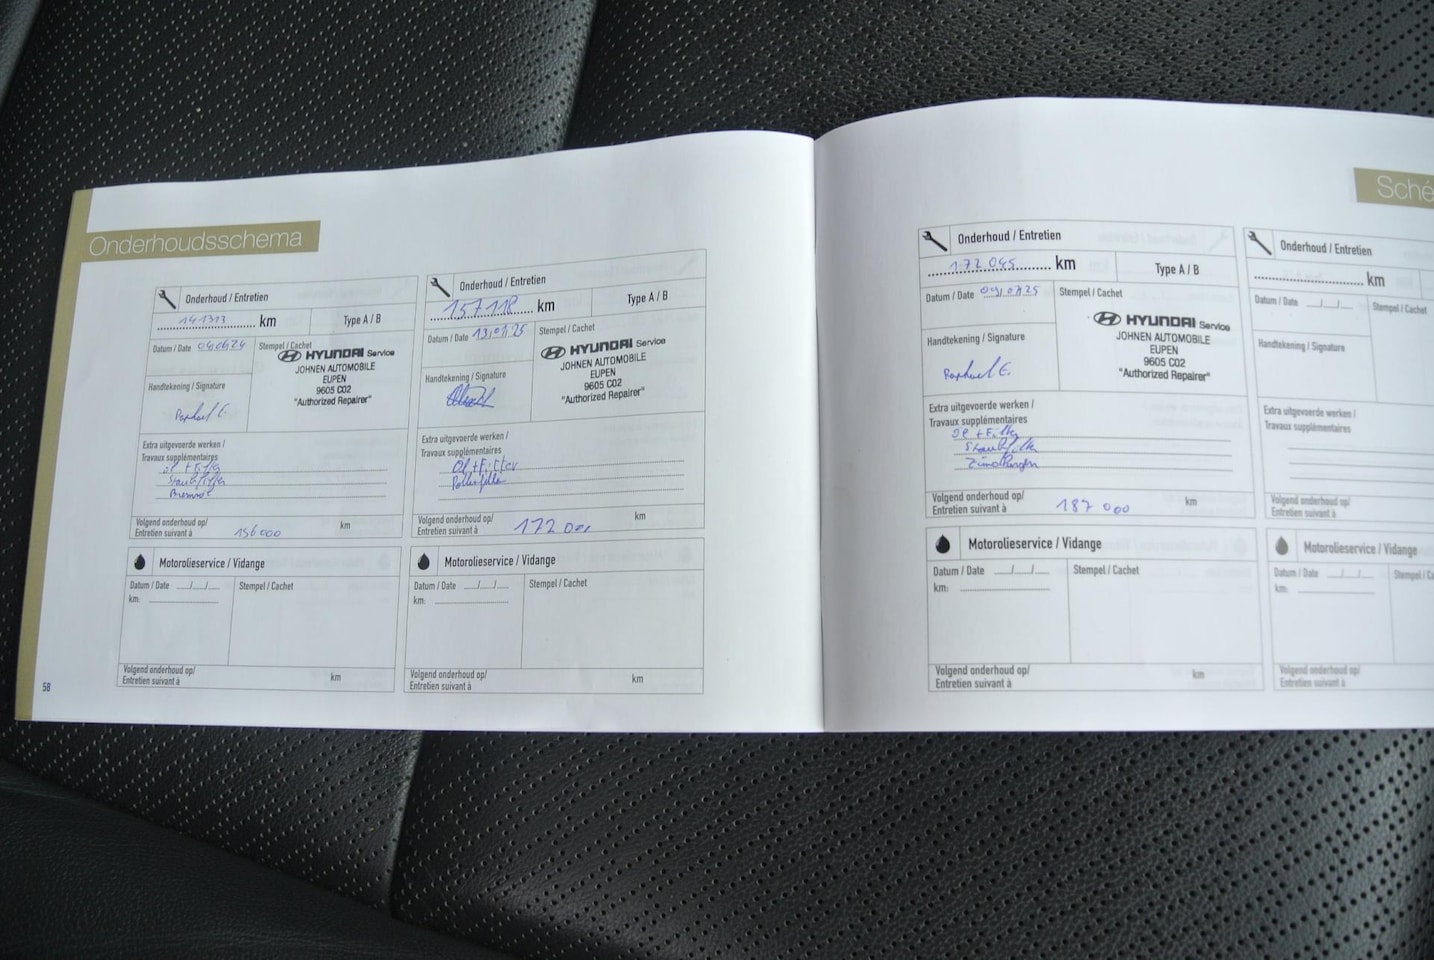 Onderhoudsschema
Onderhoud / Entretien
141313 km
Type A / B
Datum / Date 04/06/24
Stempel / Cachet
HYUNDAI Service
JOHNEN AUTOMOBILE
EUPEN
9605 C02
"Authorized Repairer"
Handtekening / Signature
Raphael E.
Extra uitgevoerde werken /
Travaux supplémentaires
Öl + Filter
Staubfilter
Volgend onderhoud op/
Entretien suivant à 156000 km
Motorolieservice / Vidange
Datum / Date
Stempel / Cachet
km:
Volgend onderhoud op/
Entretien suivant à km
Onderhoud / Entretien
157118 km
Type A / B
Datum / Date 13/01/25
Stempel / Cachet
HYUNDAI Service
JOHNEN AUTOMOBILE
EUPEN
9605 C02
"Authorized Repairer"
Handtekening / Signature
Extra uitgevoerde werken /
Travaux supplémentaires
Öl + Filter
Pollenfilter
Volgend onderhoud op/
Entretien suivant à 172 000 km
Motorolieservice / Vidange
Datum / Date
Stempel / Cachet
km:
Volgend onderhoud op/
Entretien suivant à km
58
Sché
Onderhoud / Entretien
172 045 km
Type A / B
Datum / Date
Stempel / Cachet
HYUNDAI Service
JOHNEN AUTOMOBILE
EUPEN
9605 C02
"Authorized Repairer"
Handtekening / Signature
Raphael E.
Extra uitgevoerde werken /
Travaux supplémentaires
Öl + Filter
Staubfilter
Zündkerzen
Volgend onderhoud op/
Entretien suivant à 187 000 km
Motorolieservice / Vidange
Datum / Date
Stempel / Cachet
km:
Volgend onderhoud op/
Entretien suivant à km
Onderhoud / Entretien
km
Datum / Date
Stempel / Cachet
Handtekening / Signature
Extra uitgevoerde werken /
Travaux supplémentaires
Volgend onderhoud op/
Entretien suivant à
Motorolieservice / Vidange
Datum / Date
Stempel / C
km:
Volgend onderhoud op/
Entretien suivant à